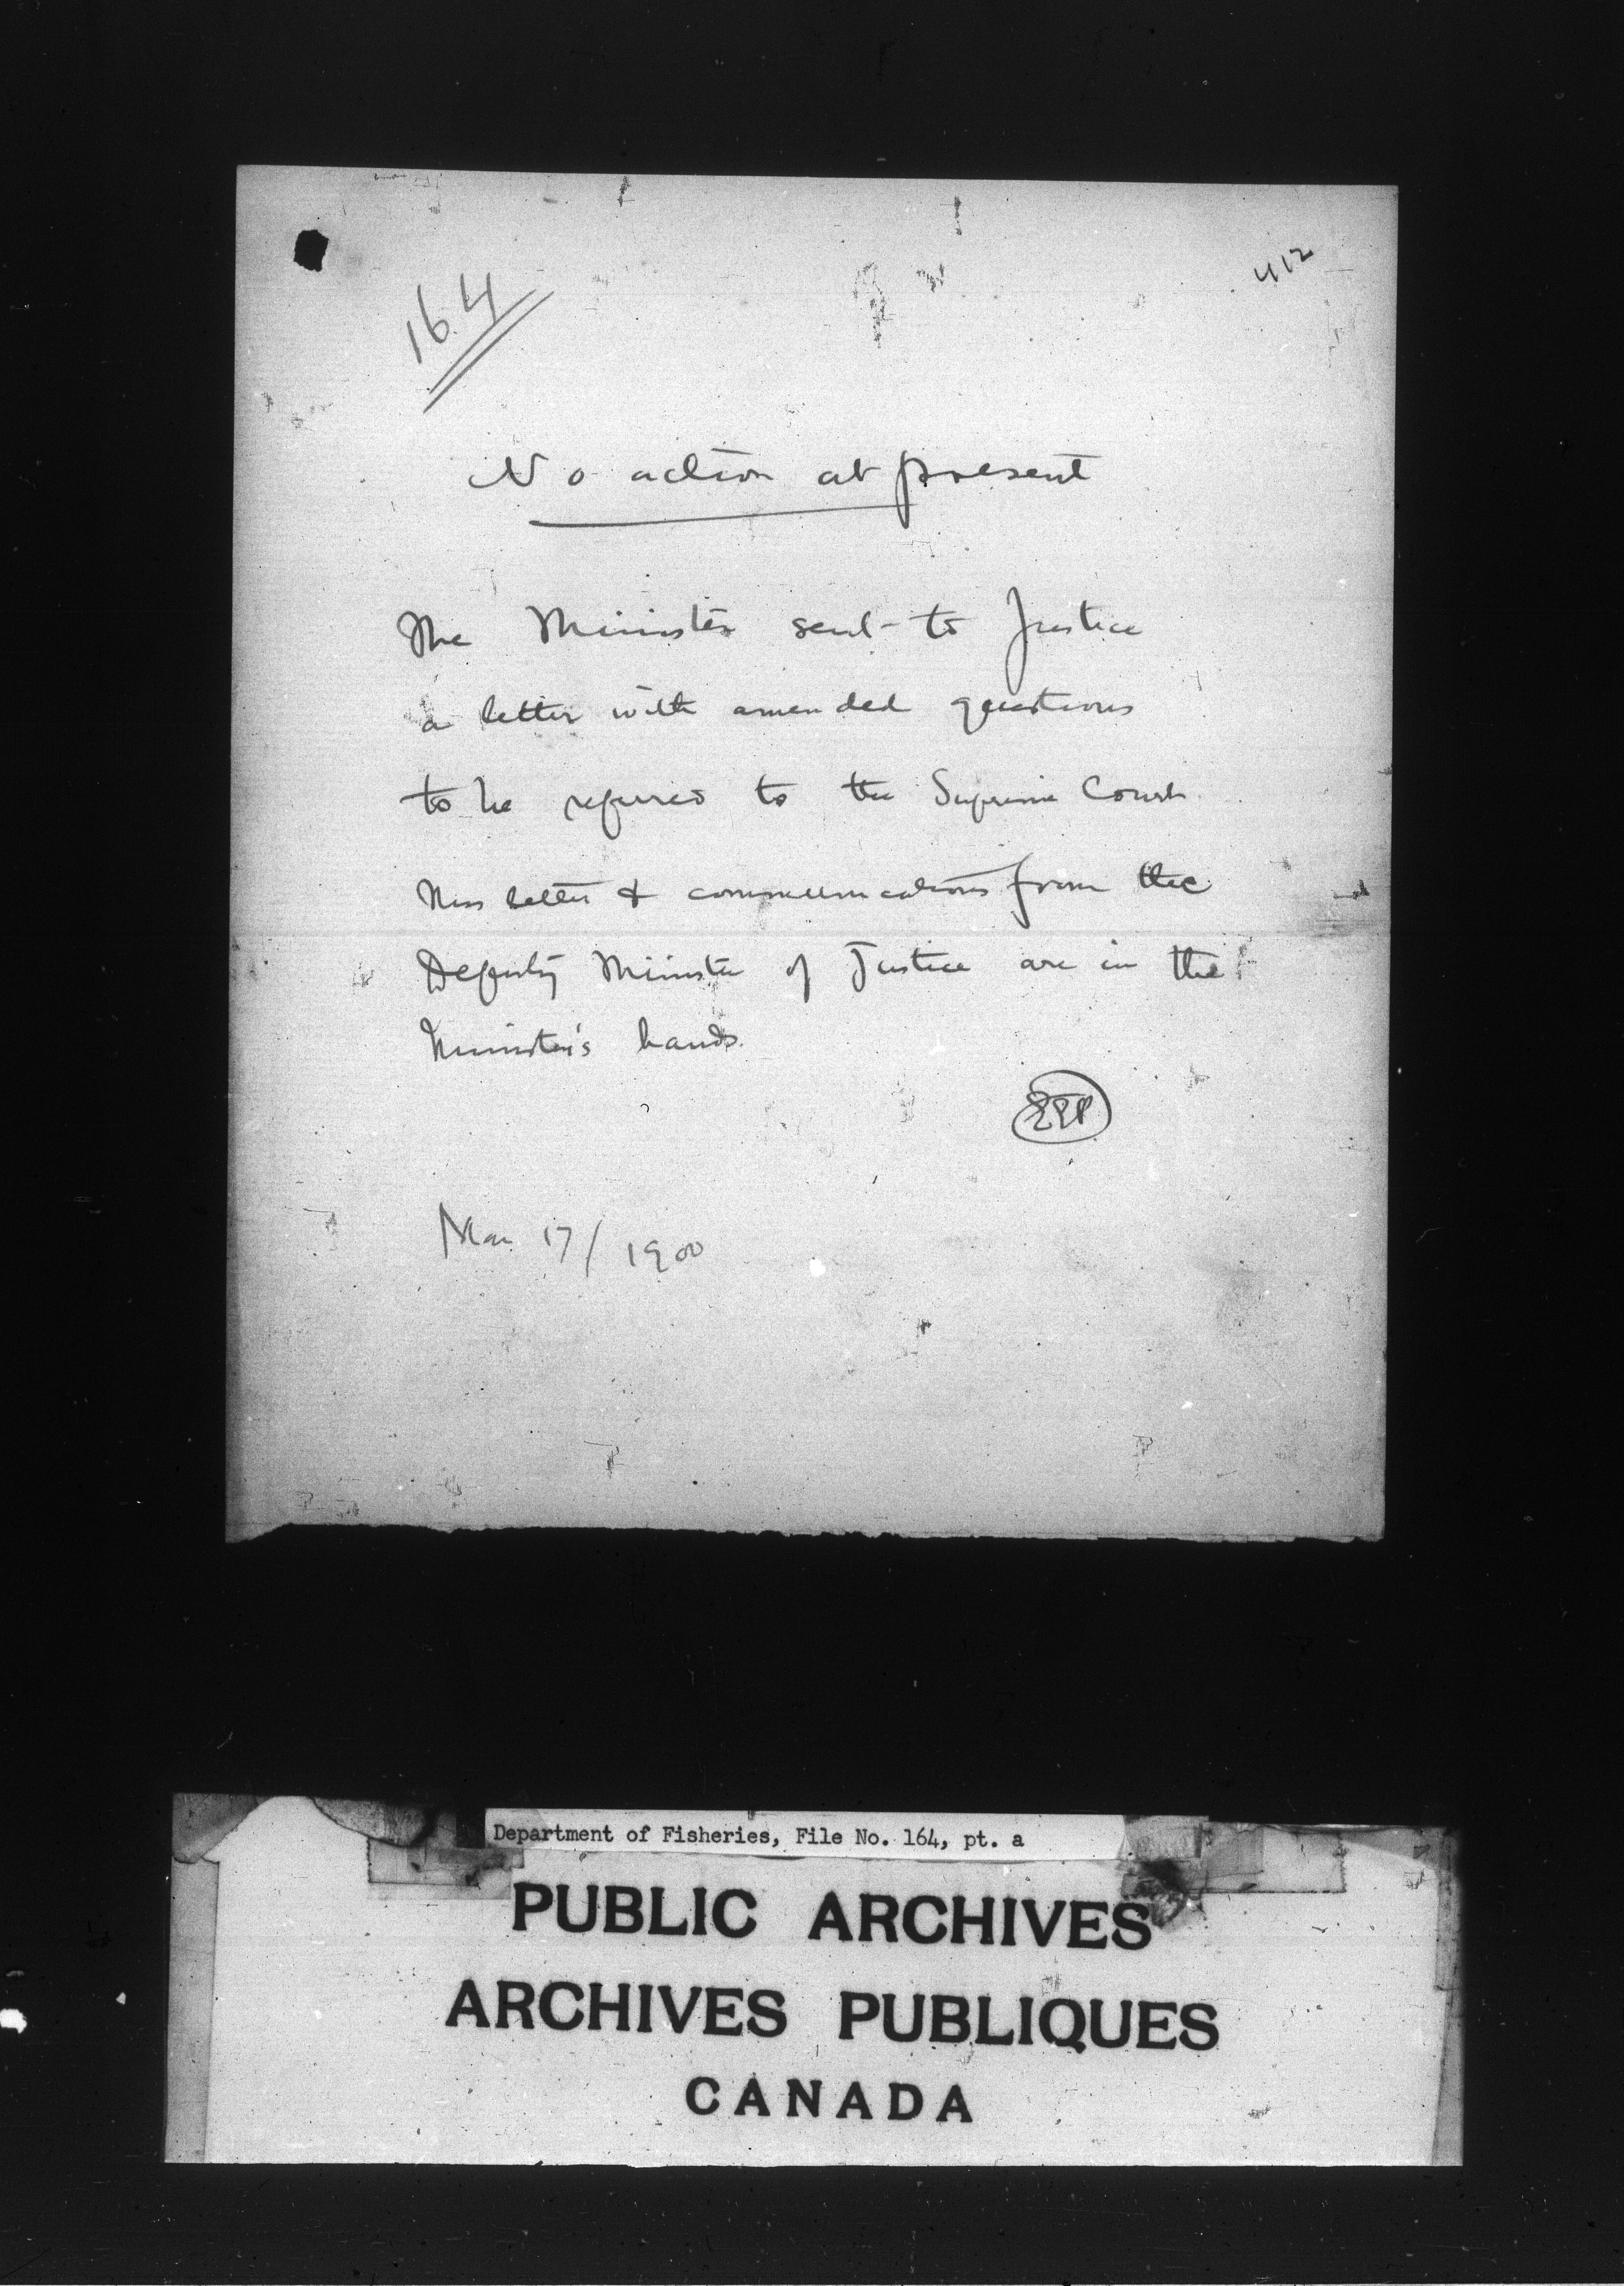 412
164
No action at present
The Minister sent to Justice
a letter with amended questions
to be referred to the Supreme Court
This letter & communications from the
Deputy Minister of Justice are in the
Minister's hands.
EEP
Mar 17/1900
Department of Fisheries, File No. 164, pt. a
PUBLIC ARCHIVES
ARCHIVES PUBLIQUES
CANADA